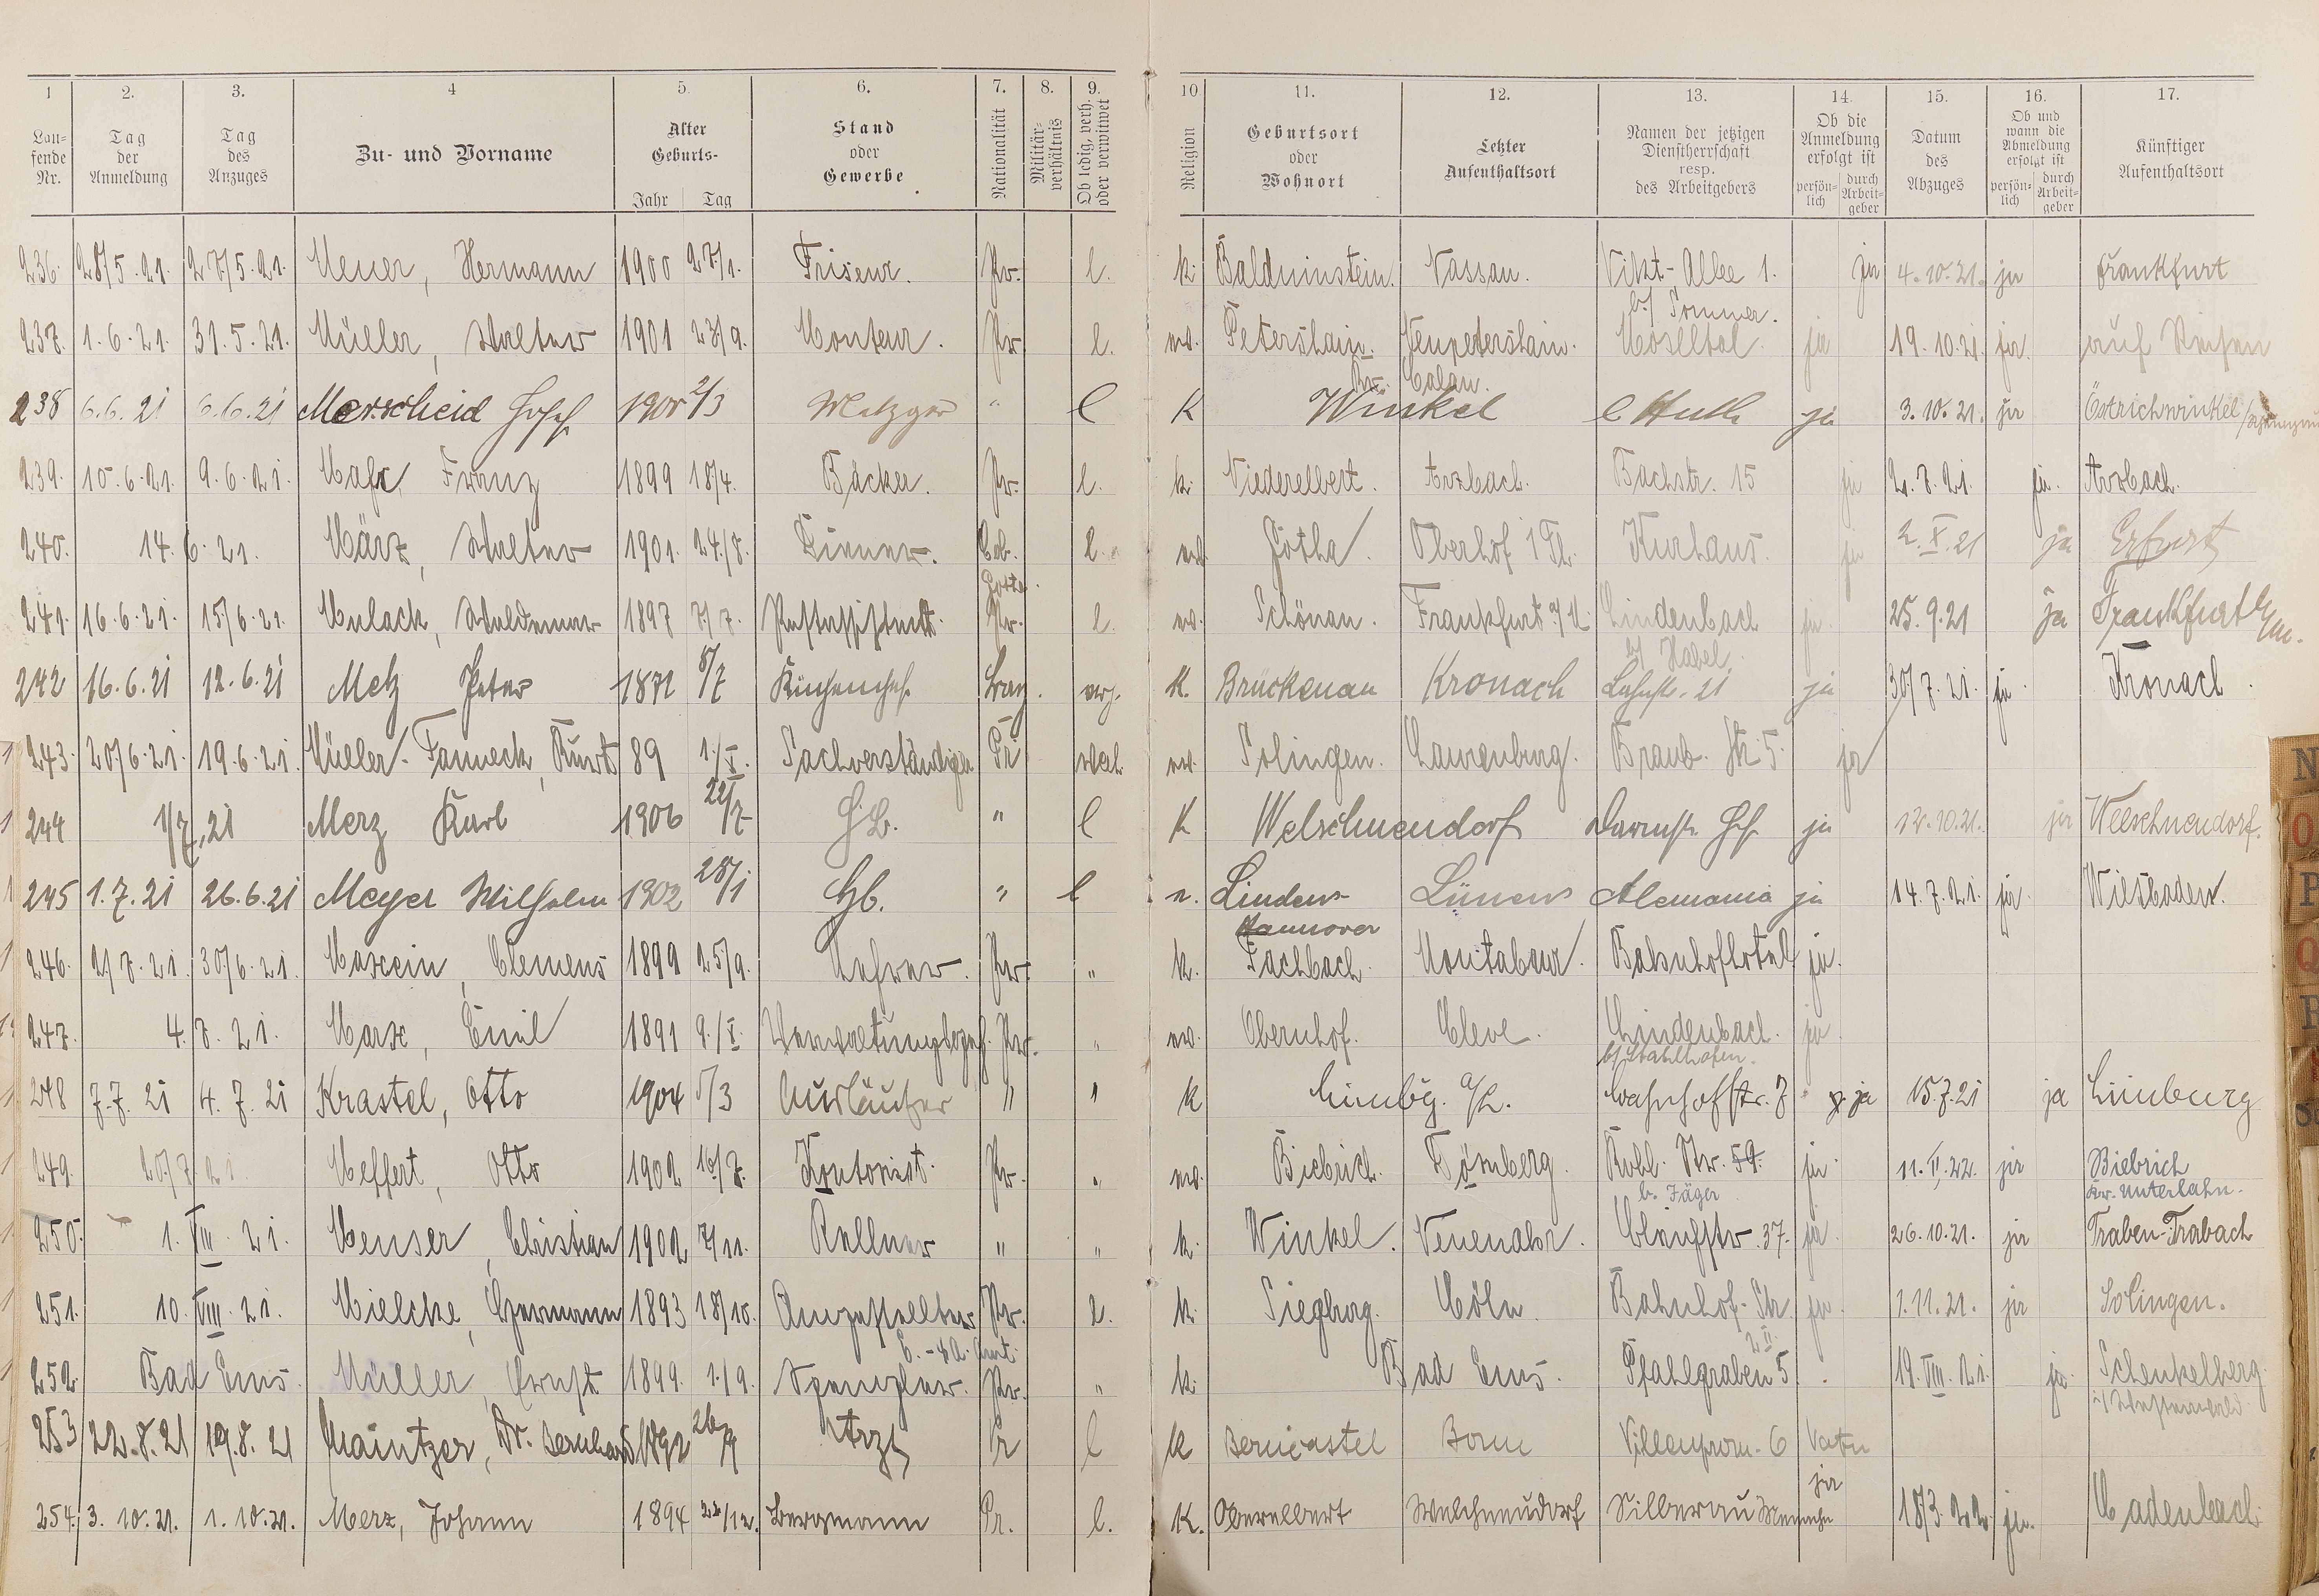 1 2. 3. 4 5. 6. 7. 8. 9. 10 11. 12. 13. 14. 15. 16. 17.
Lau-fende Nr. Tag der Anmeldung Tag des Anzuges Zu- und Vorname Alter Geburts- Jahr Tag Stand oder Gewerbe Nationalität Militär-verhältnis Ob ledig, verh. oder verwitwet Religion Geburtsort oder Wohnort Letzter Aufenthaltsort Namen der jetzigen Dienstherrschaft resp. des Arbeitgebers Ob die Anmeldung erfolgt ist persön-lich durch Arbeit-geber Datum des Abzuges Ob und wann die Abmeldung erfolgt ist persön-lich durch Arbeit-geber Künftiger Aufenthaltsort
236. 28/5.21. 27/5.21. Meuer, Hermann 1900 27/1. Friseur. Pr. l. k. Balduinstein. Nassau. Vikt-Allee 1. ja 4.10.21. ja Frankfurt
b/ Sommer.
237. 1.6.21. 31.5.21. Müller, Walter 1901 23/9. Monteur. Pr. l. ev. Petershain. Neupetershain. Moselltal ja 19.10.21. ja. auf Reisen
Kr. Calau.
238 6.6.21 6.6.21 Merscheid Josef 2/3 Metzger " l K Winkel ja 3.10.21. ja Östrichwinkel
239. 10.6.21. 9.6.21. Franz 1899 18/4. Bäcker. Pr. l. k. Niederelbert. Arzbach. Bachstr. 15 ja 2.7.21. ja. Arzbach.
240. 14.6.21. März, Walter 1901. 24/8. Diener. Cob. l. ev. Gotha. Oberhof i Th. Kurhaus. ja 2.X.21 ja Erfurt
Gotha.
241. 16.6.21. 15/6.21. Mulack, Waldemar 1897 7/7. Postassistent. Pr. l. ev. Schönau. Frankfurt a/M. Lindenbach ja. 25.9.21 ja Frankfurt a/M.
b/ Habel.
242 16.6.21 12.6.21 Metz Peter 1872 8/7 Küchenchef Bay. verh. K. Brückenau Kronach Lahnstr. 21 ja 30/7.21. ja. Kronach.
243. 20/6.21. 19.6.21. Müller-Fanneck, Kurt 89 1./X. Sachverständiger Pr ev. Solingen. Laurenburg. Braub. Str. 5. ja
244 1/7.21 Merz Karl 1906 22/7 Hb. " l K Welschneudorf Darmst. Hof ja 12.10.21. ja Welschneudorf.
245 1.7.21 26.6.21 Meyer Wilhelm 1902 28/1 Hb. " l Linden- Lünen Alemania ja 14.7.21. ja Wiesbaden.
Hannover
246. 2/7.21. 30/6.21. Marcein, Clemens 1899 25/9. Lehrer. Pr. " k. Fachbach. Montabaur. Bahnhofhotel ja.
247. 4.7.21. Marx, Emil 1891 9./X. Pr. " ev. Obernhof. Cleve. Lindenbach. ja.
b/ Stahlhofen.
248 7.7.21 4.7.21 Krastel, Otto 1904 5/3 Ausläufer " " K Limbg. a/L. Bahnhofstr. 7 ja 15.7.21 ja Limburg
249. 20/7.21. Meffert, Otto 1902 10/7. Kontorist. Pr. " ev. Biebrich. Dörnberg. Kobl. Str. 59. ja. 11.II.22. ja Biebrich
b. Jäger Kr. Unterlahn.
250. 1.VIII.21. Menser, Christian 1902 7/11. Kellner " " k. Winkel. Neuenahr. 37. ja. 26.10.21. ja Traben-Trabach
251. 10.VIII.21. Mielcke, Hermann 1893 18/10. Angestellter Pr. l. k. Siegburg. Cöln. Bahnhof-Str. ja. 1.11.21. ja Solingen.
252. Bad Ems. Müller, Ernst 1899. 1./9. Spengler. Pr. " k. Bad Ems. Pfahlgraben 5. 19.VIII.21. ja. Schenkelberg.
i/ Westerwald.
253 22.8.21 19.8.21 Maintzer, Dr. Bernhard 1892 26/9 Arzt Pr l K Berncastel Bonn Villenprom. 6 Vater
254. 3.10.21. 1.10.21. Merz, Johann 1894 22/12. Bergmann Pr. l. K. Oberelbert Welschneudorf Silberau ja 18/3.22. ja. Cadenbach.